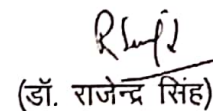 (डॉ. राजेन्द्र सिंह)